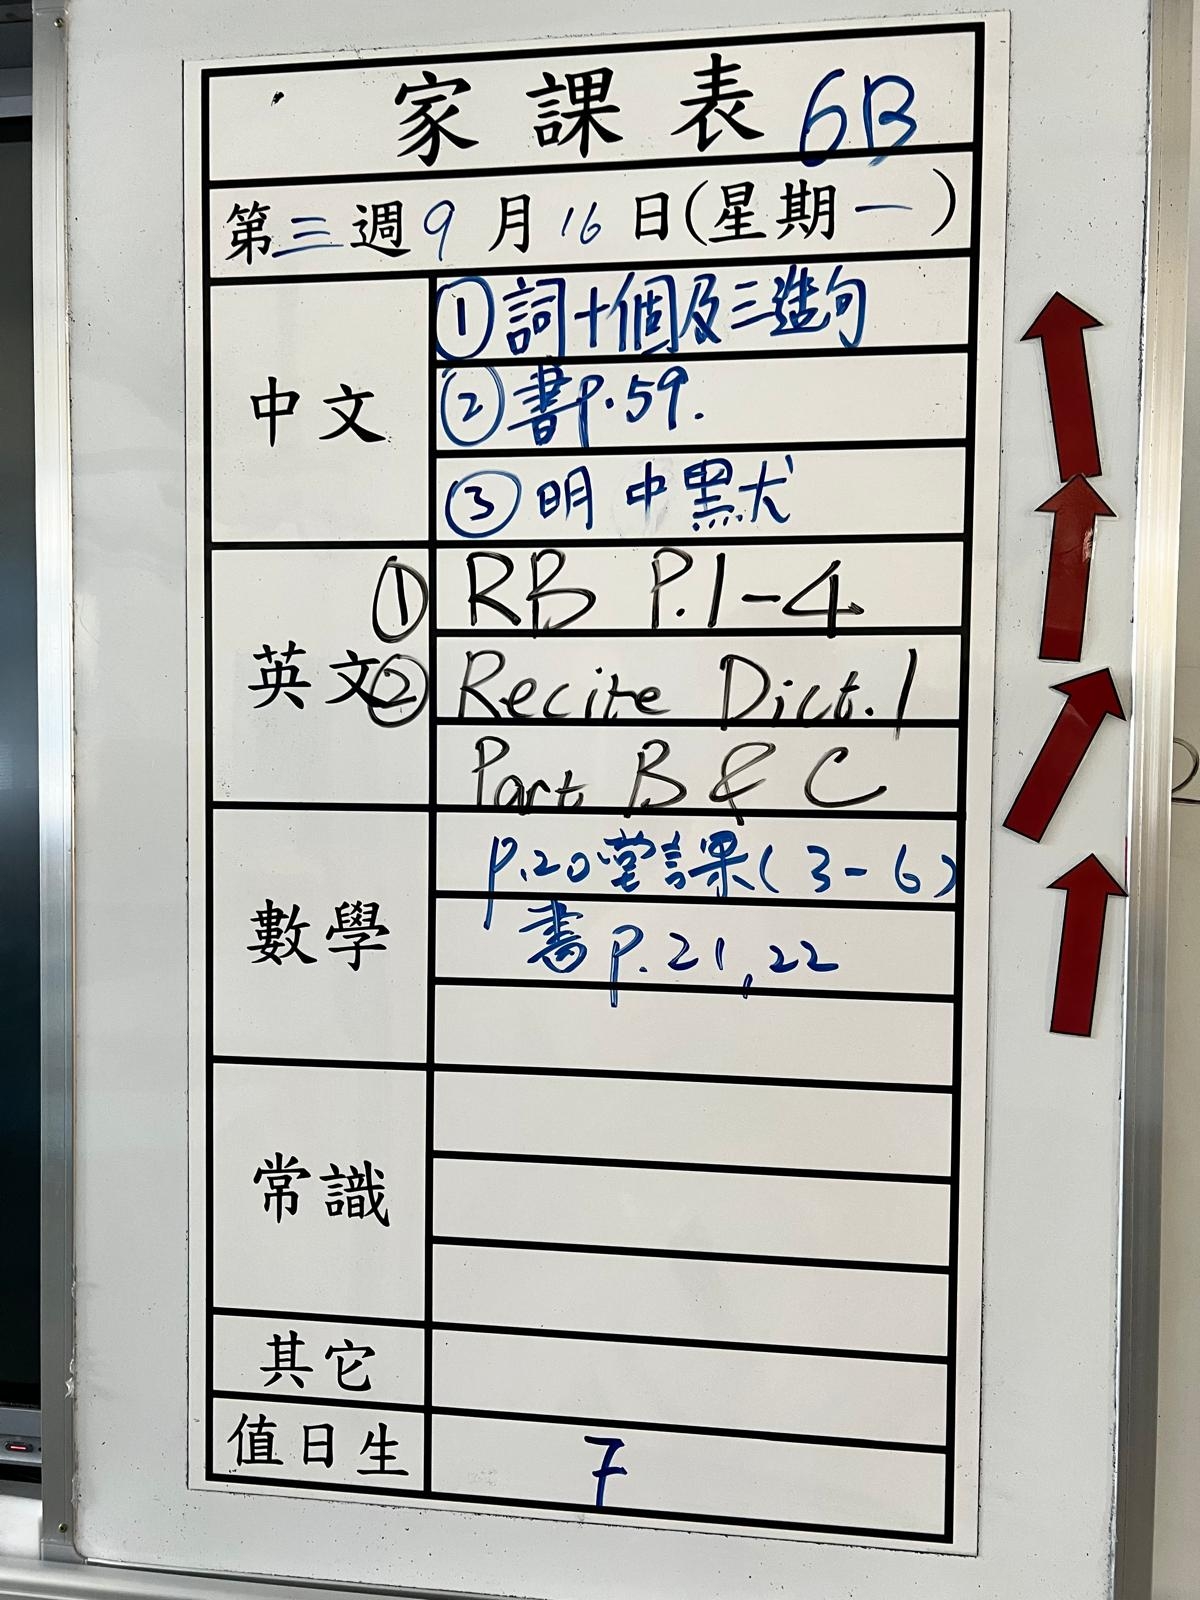 家課表 6B
第三週9月16日(星期一)
中文
①詞十個及三造句
②書p.59.
③明中默
英文
① RB P.1-4
② Recite Dict.1
Part B & C
數學
p.20堂課(3-6)
書p.21,22
常識
其它
值日生
7